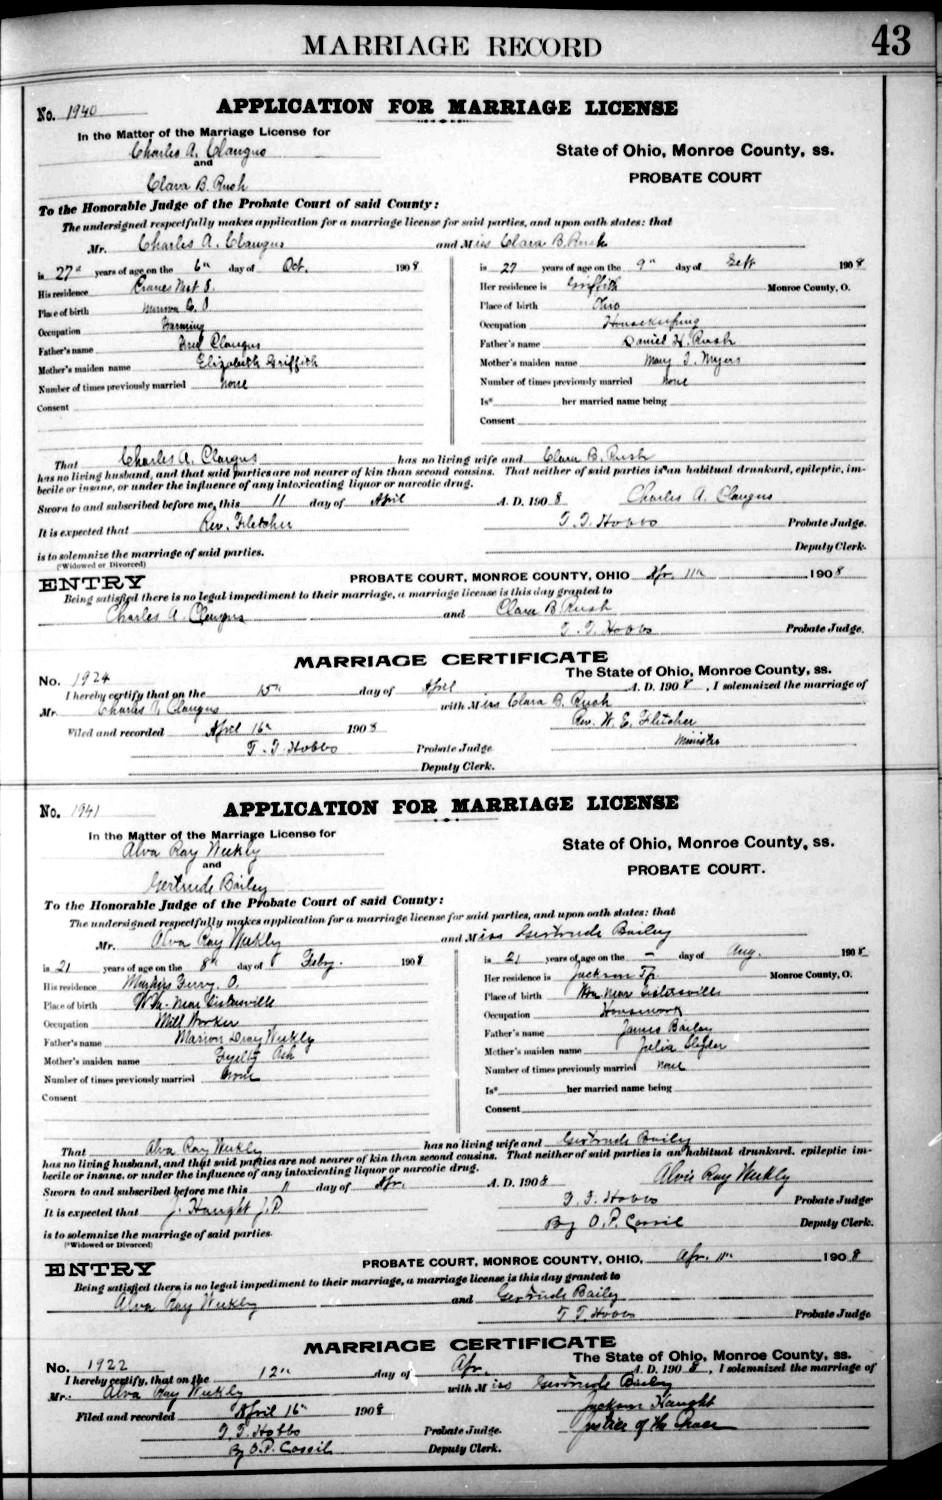 MARRIAGE RECORD 43
No. 1940 APPLICATION FOR MARRIAGE LICENSE
In the Matter of the Marriage License for
Charles A. Claugus
and
Clara B. Rush
State of Ohio, Monroe County, ss.
PROBATE COURT
To the Honorable Judge of the Probate Court of said County:
The undersigned respectfully makes application for a marriage license for said parties, and upon oath states: that
Mr. Charles A. Claugus and Miss Clara B. Rush
is 27 years of age on the 6th day of Oct. 1908
His residence
Place of birth Monroe C. O
Occupation Farming
Father's name Fred Claugus
Mother's maiden name Elizabeth Griffith
Number of times previously married none
Consent
is 27 years of age on the 9th day of Sept 1908
Her residence is Griffith Monroe County, O.
Place of birth Ohio
Occupation Housekeeping
Father's name Daniel H. Rush
Mother's maiden name Mary J. Myers
Number of times previously married none
Is* her married name being
Consent
That Charles A. Claugus has no living wife and Clara B. Rush
has no living husband, and that said parties are not nearer of kin than second cousins. That neither of said parties is an habitual drunkard, epileptic, im-
becile or insane, or under the influence of any intoxicating liquor or narcotic drug.
Sworn to and subscribed before me, this 11 day of April A. D. 1908 Charles A. Claugus
It is expected that Rev. Fletcher T. T. Hobbs Probate Judge.
is to solemnize the marriage of said parties. Deputy Clerk.
(*Widowed or Divorced)
ENTRY PROBATE COURT, MONROE COUNTY, OHIO Apr. 11th 1908
Being satisfied there is no legal impediment to their marriage, a marriage license is this day granted to
Charles A. Claugus and Clara B. Rush
T. T. Hobbs Probate Judge.
MARRIAGE CERTIFICATE
No. 1924 The State of Ohio, Monroe County, ss.
I hereby certify that on the 15th day of April A. D. 1908, I solemnized the marriage of
Mr. Charles A. Claugus with Miss Clara B. Rush
Filed and recorded April 16th 1908 Rev. W. E. Fletcher
T. T. Hobbs Probate Judge Minister
Deputy Clerk.
No. 1941 APPLICATION FOR MARRIAGE LICENSE
In the Matter of the Marriage License for
Alva Ray Weekly
and
Gertrude Bailey
State of Ohio, Monroe County, ss.
PROBATE COURT.
To the Honorable Judge of the Probate Court of said County:
The undersigned respectfully makes application for a marriage license for said parties, and upon oath states: that
Mr. Alva Ray Weekly and Miss Gertrude Bailey
is 21 years of age on the 8th day of Feby. 1908
His residence Ferry. O.
Place of birth W Va. near Sistersville
Occupation Mill Worker
Father's name Marion Weekly
Mother's maiden name Ash
Number of times previously married none
Consent
is 21 years of age on the — day of Aug. 1908
Her residence is Jackson Tp. Monroe County, O.
Place of birth near Sistersville
Occupation Housework
Father's name James Bailey
Mother's maiden name Julia
Number of times previously married none
Is* her married name being
Consent
That Alva Ray Weekly has no living wife and Gertrude Bailey
has no living husband, and that said parties are not nearer of kin than second cousins. That neither of said parties is an habitual drunkard, epileptic im-
becile or insane, or under the influence of any intoxicating liquor or narcotic drug.
Sworn to and subscribed before me this 11 day of Apr. A. D. 1908 Alvie Ray Weekly
It is expected that J. Haught J.P. T. T. Hobbs Probate Judge
is to solemnize the marriage of said parties. By O. P. Cassil Deputy Clerk.
(*Widowed or Divorced)
ENTRY PROBATE COURT, MONROE COUNTY, OHIO, Apr. 11th 1908
Being satisfied there is no legal impediment to their marriage, a marriage license is this day granted to
Alva Ray Weekly and Gertrude Bailey
T. T. Hobbs Probate Judge
MARRIAGE CERTIFICATE
No. 1922 The State of Ohio, Monroe County, ss.
I hereby certify, that on the 12th day of Apr. A. D. 1908, I solemnized the marriage of
Mr. Alva Ray Weekly with Miss Gertrude Bailey
Filed and recorded April 16th 1908 Jackson Haught
T. T. Hobbs Probate Judge. Justice of the Peace
By O. P. Cassil Deputy Clerk.